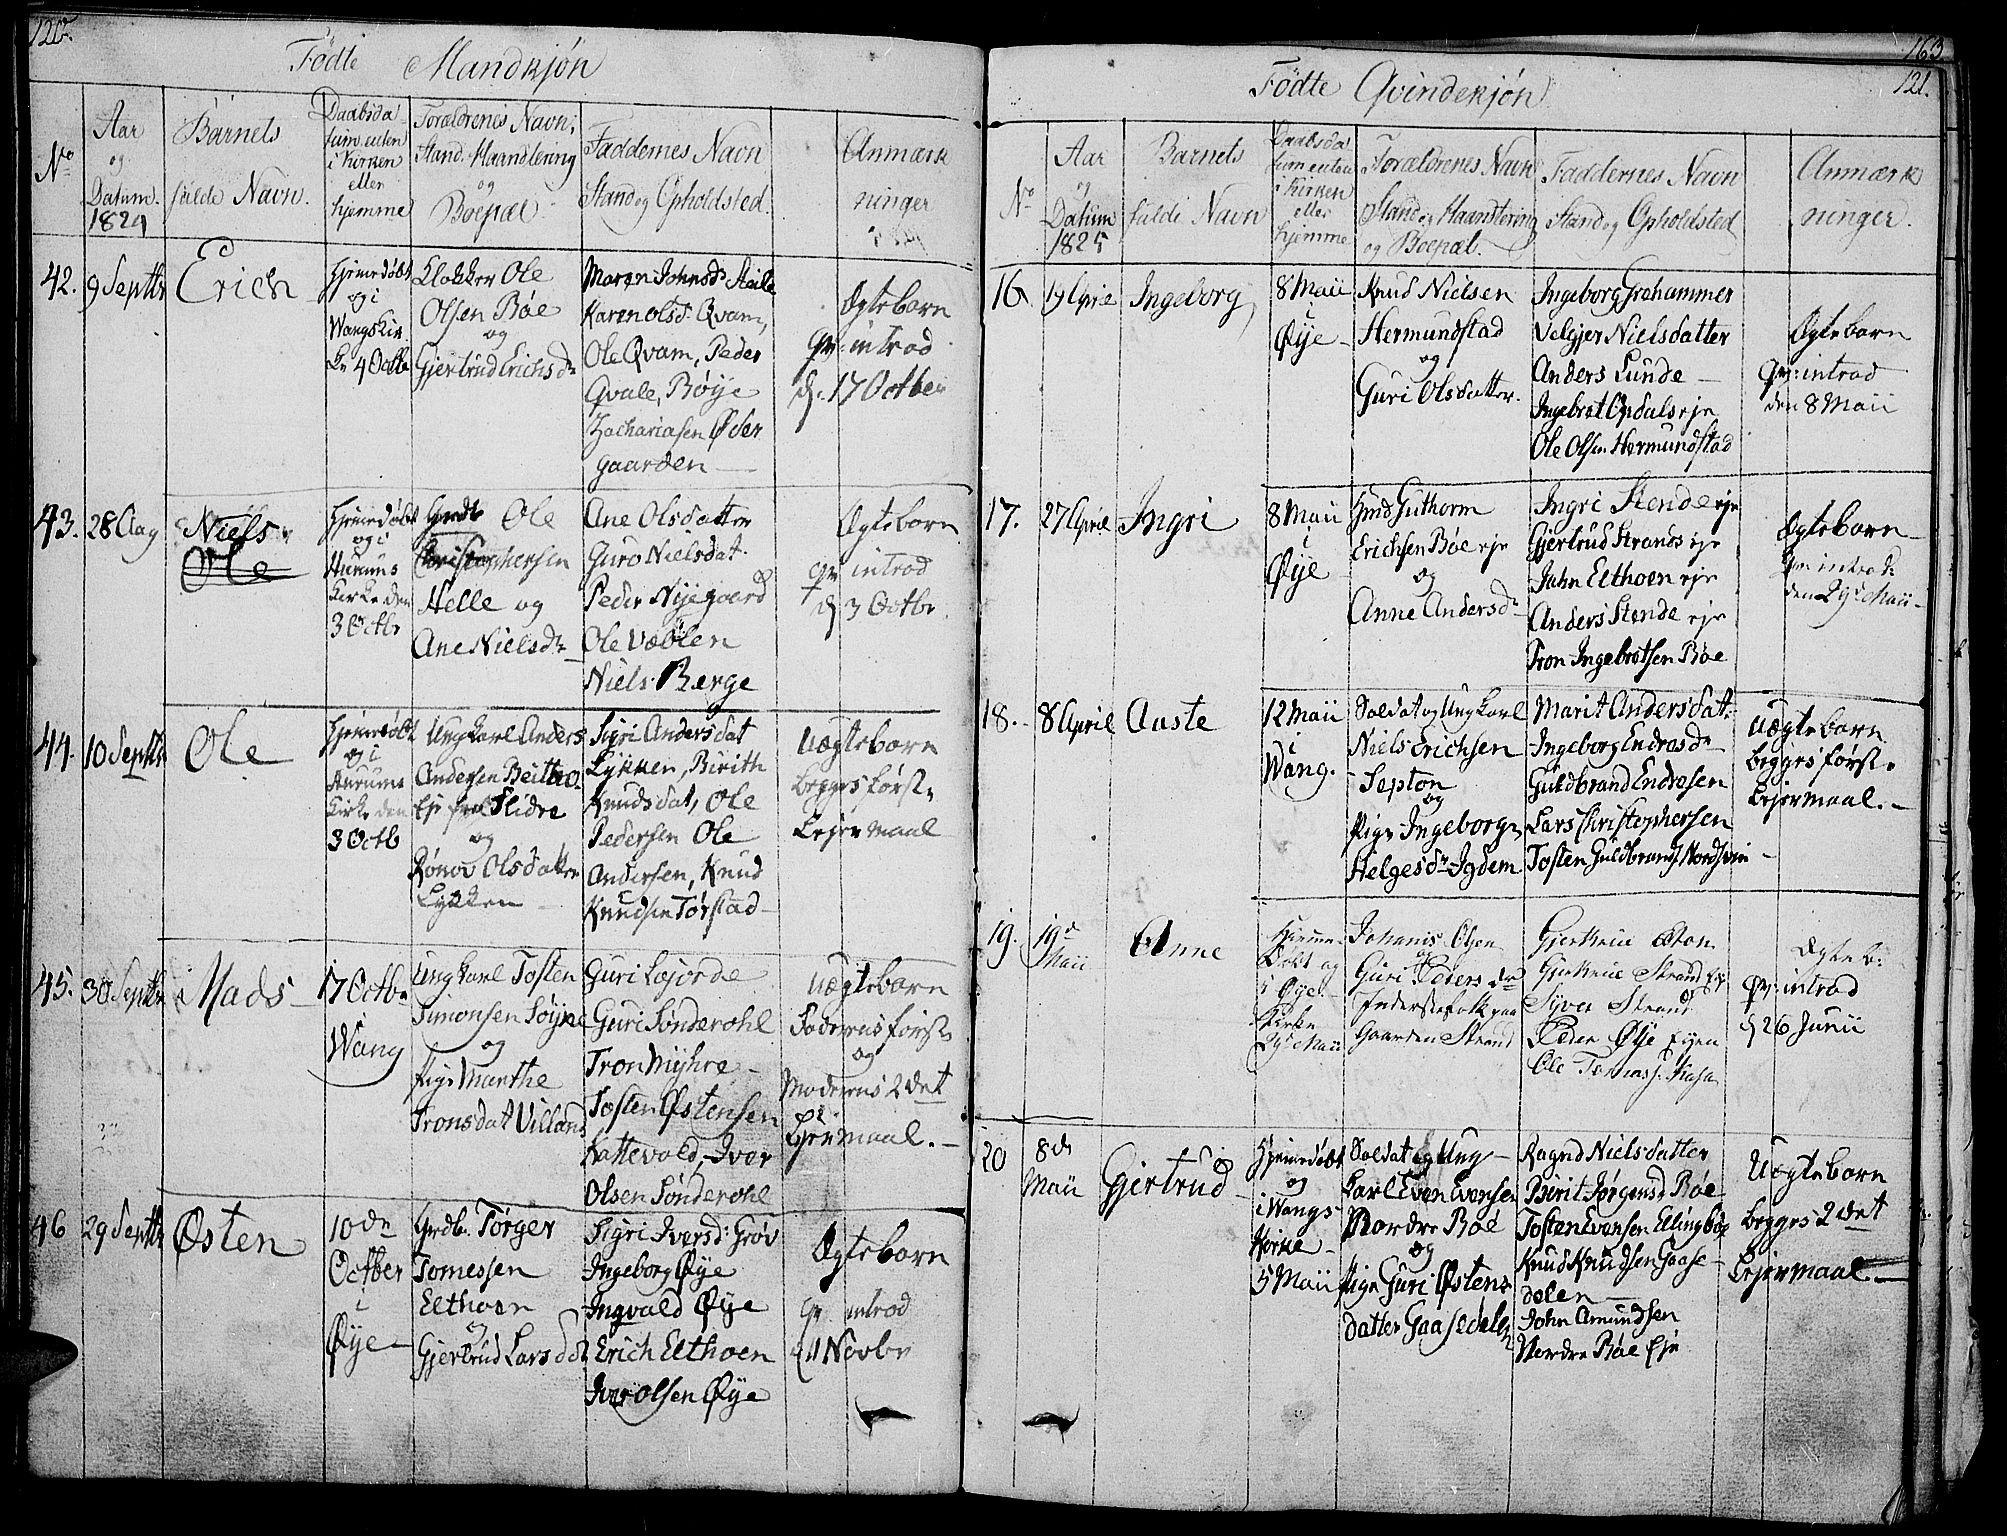 120.
Födte Mandkjön
No
Aar
og
Datum.
1824
Barnets
fulde Navn.
Daabsda
tum enten
i Kirken
eller
hjemme
Forældrenes Navn,
Stand, Haandtering
og
Boepæl.
Faddernes Navn
Stand og Opholdsted.
Anmærk
ninger
42.
9 Septbr
Erich
Hjemedöbt
og i
Wangs Kir
ke 4 Octbr
Klokker Ole
Olsen Böe
og
Gjertrud Erichsdr
Maren Johnsdr Steile
Karen Olsd. Qvam,
Ole Qvam, Peder
Qvale, Böye
Zachariasen Öder
gaarden
Ægteborn
Qv: introd
d. 17 Octber
43.
28 Aug
Niels
Ole
Hjemedöbt
og i
Hurums
Kirke den
3 Octbr
Grdb Ole
Christophersen
Helle og
Ane Nielsdr
Ane Olsdatter
Guro Nielsdat.
Peder Nijegaard
Ole Væblen
Niels Berge
Ægteborn
Qv introd
d 3 Octbr.
44.
10 Septbr
Ole
Hjemedöbt
og i
Hurums
Kirke den
3 Octb
Ungkarl Anders
Andersen Beitto
Eje fra Slidre
og
Rönov Olsdatter
Lykken
Sigri Andersdat
Lykken, Birith
Knudsdat, Ole
Pedersen Ole
Andersen, Knud
Knudsen Törstad
Uægteborn
begges först
Lejermaal
45.
30 Septbr
Mads
17 Octbr
Wang
Ungkarl Tosten
Simonsen Söyne
og
Pige Marthe
Tronsdat Villand
Guri Lojorde
Guri Sönderohl
Tron Myhre
Tosten Östensen
Kattevold, Iver
Olsen Sönderohl
Uægteborn
Faderens först
og
Moderens 2det
Lejermaal.
46
29 Septbr
Östen
10de
Octber
i
Öye
Grdb. Törger
Tomessen
Elthoen
og
Gjertrud Larsdat
Sigri Iversd: Gröv
Ingeborg Öye
Ingvald Öye
Erich Elthoen
Iver Olsen Öye
Ægteborn
Qv introd
d 11 Novbr
163
121.
Födte Qvindekjön
No
Aar
og
Datum
1825
Barnets
fulde Navn
Daabsda
tum enten
i Kirken
eller
hjemme
Forældrenes Navn
Stand og Haandtering
og Boepæl.
Faddernes Navn
Stand og Opholdsted
Anmærk
ninger.
16.
19 Aprie
Ingeborg
8 Maii
i
Öye
Knud Nielsen
Hermundstad
og
Guri Olsdatter.
Ingeborg Grehammer
Velgjer Nielsdatter
Anders Lunde
Ingebret Opdals eje
Ole Olsen Hermundstad
Ægteborn
Qv: introd
den 8 Maii
17.
27 Aprie
Ingri
8 Maii
i
Öye
Huusmd Guthorm
Erichsen Böe eje
og
Anne Andersdr
Ingri Stende eje
Gjertrud Strands eje
Jahn Elthoen eje
Anders Stende eje
Tron Ingebretsen Böe
Ægteborn
Qv introd:
den 29de Maii
18.
8 April
Aaste
12 Maii
i
Wang.
Soldat og Ungkarl
Niels Erichsen
Septon
og
Pige Ingeborg
Helgesdr Igdem
Marit Andersdat.
Ingeborg Endresdr
Guldbrand Endresen
Lars Christophersen
Tosten Guldbrands. Nordsvin
Uægteborn
begges först
Lejermaal.
19.
19d
Maii
Anne
Hjemme-
döbt og
i Öye
Kirke
29de Maii
Johanis Olsen
og
Guri Peders dr
Inderstefolk paa
Gaarden Strand
Gjertrue
Gjertrue Strand Ej
Syver Strand
Peder Öye Ejen
Ole Tomass.
Ægteb:
Qv: introd
d 26 Junii
20
8de
Maii
Gjertrud
Hjemedöbt
og
i Wangs
Kirke
5 Maii
Soldat og Ung
karl Even Evensen
Nordre Böe
og
Pige Guri Östens
datter Gaasedelen
Ragnd Nielsdatter
Birit Jörgensd Böe
Tosten Evensen Ellingböe
Knud Knudsen Gaase
delen
John Amundsen
Nordre Böe Eje
Uægteborn
begges 2det
Lejermaal.